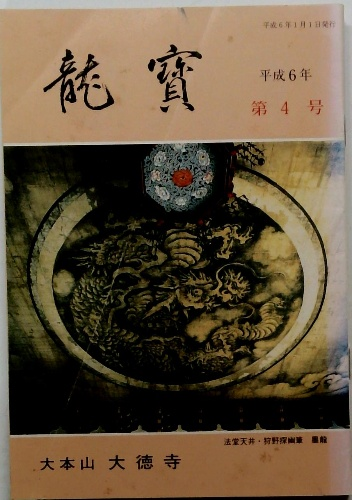 平成6年1月1日発行
龍寳
平成6年
第4号
法堂天井・狩野探幽筆 雲龍
大本山 大徳寺